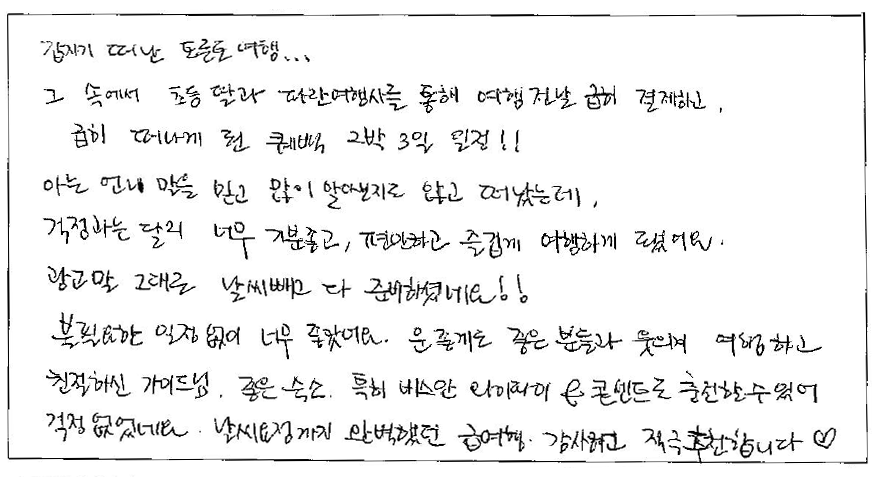 갑자기 떠난 토론토 여행...
그 속에서 초등 딸과 파란여행사를 통해 여행 전날 급히 결제하고,
급히 떠나게 된 퀘벡 2박 3일 일정!!
아는 언니 말을 믿고 많이 알아보지도 않고 떠났는데,
걱정과는 달리 너무 기분좋고, 편안하고 즐겁게 여행하게 됐어요.
광고말 그대로 날씨빼고 다 준비하셨네요!!
불필요한 일정없이 너무 좋았어요. 운좋게도 좋은 분들과 웃으며 여행하고
친절하신 가이드님, 좋은 숙소, 특히 버스안 와이파이 & 콘센트로 충전할수있어
걱정없었네요. 날씨요정까지 완벽했던 급여행. 감사하고 적극추천합니다 ♡